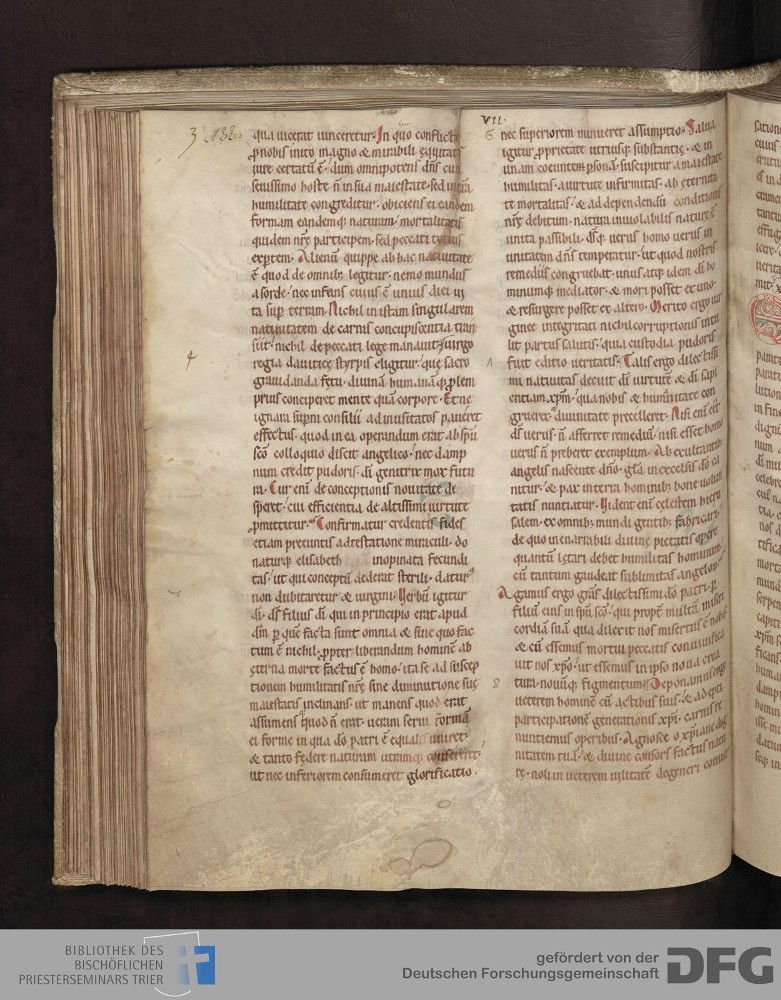 3 138
qua uicerat uinceretur. In quo conflictu
ꝓnobis inito magno & mirabili equitatis
iure certatū ē. dum omnipotens dn̄s cum
seuissimo hoste n̄ in sua maiestate. sed in nr̄a
humilitate congreditur. obiciens ei eandem
formam eandemq; naturam. mortalitatis
quidem nrę̄ participem. sed peccati totius
exptem. Alienū quippe ab hac natiuitate
ē quod de omnib; legitur. nemo mundus
a sorde. nec infans cuius ē unius diei ui
ta sup terram. Nichil in istam singularem
natiuitatem de carnis concupiscentia tran
siit. nichil de peccati lege manauit. uirgo
regia dauitice styrpis eligitur. quę sacro
4
grauidanda fętu. diuinā humanāq; ꝓlem
prius conciperet mente quā corpore. Et ne
ignara supni consilii ad inusitatos paueret
effectus. quod in ea operandum erat ab sp̄u
sc̄o colloquio discit angelico. nec damp
num credit pudoris. dī genitrix mox futu
ra. Cur enī de conceptionis nouitate de
speret. cui efficientia de altissimi uirtute
ꝓmittitur. Confirmatur credentis fides
etiam preeuntis adtestatione miraculi. do
naturq; elisabeth inopinata fecundi
tas. ut qui conceptū dederat sterili. datur᷒
non dubitaretur & uirgini. Uerbū igitur
dī. ds̄ filius dī qui in principio erat apud
dm̄ p quē facta sunt omnia & sine quo fac
tum ē nichil. ꝓpter liberandum hominē ab
ęterna morte factus ē homo. ita se ad suscep
tionem humilitatis nrę̄ sine diminutione suę
maiestatis inclinans. ut manens quod erat
assumens quod n̄ erat. ueram serui formā
ei forme in qua dō patri ē equalis uniret.
& tanto fędere naturam utrimq; consereret.
ut nec inferiorem consumeret glorificatio.
VII.
6 nec superiorem minueret assumptio. Salua
igitur ꝓprietate utriusq; substantię. & in
unam coeuntem psonā. suscipitur a maiestate
humilitas. a uirtute infirmitas. ab ęternita
te mortalitas. & ad dependendū conditionis
nrę̄ debitum. natura inuiolabilis naturę ē
unita passibili. ds̄q; uerus & homo uerus in
unitatem dn̄s temperatur. ut quod nostris
remediis congruebat. unus atq; idem dī ho
minumq; mediator. & mori posset ex uno.
& resurgere posset ex altero. Merito ergo uir
ginee integritati nichil corruptionis intu
lit partus salutis. quia custodia pudoris
fuit editio ueritatis. Talis ergo dilectissi
mi natiuitas decuit dī uirtutē & dī sapi
entiam xp̄m. qua nobis & humanitate con
grueret. & diuinitate precelleret. Nisi enī eēt
ds̄ uerus. n̄ afferret remediū. nisi esset homo
uerus n̄ preberet exemplum. Ab exultantib;
angelis nascente dn̄o. gl̄a in excelsis dō ca
nitur. & pax in terra hominib; bone uolun
tatis nuntiatur. Uident enī cęlestem hieru
salem. ex omnib; mundi gentib; fabricari.
de quo inenarrabili diuine pietatis opere
quantū lętari debet humilitas hominum.
cū tantum gaudeat sublimitas angeloꝝ.
Agamus ergo grās dilectissimi dō patri. p
filiū eius in sp̄u sc̄o. qui propt̄ multā miseri
cordiā suā qua dilexit nos misertus ē nobis
& cū essemus mortui peccatis conuiuifica
uit nos xp̄o. ut essemus in ipso noua crea
8 tura. nouūq; figmentum. Deponamus ergo
ueterem hominē cū actibus suis. & adepti
participationē generationis xp̄i. carnis re
nuntiemus operibus. Agnosce o xp̄iane dig
nitatem tuā. & diuine consors factus natu
rę. noli in ueterem uilitatē degeneri conuer
BIBLIOTHEK DES
BISCHÖFLICHEN
PRIESTERSEMINARS TRIER
gefördert von der
Deutschen Forschungsgemeinschaft
DFG